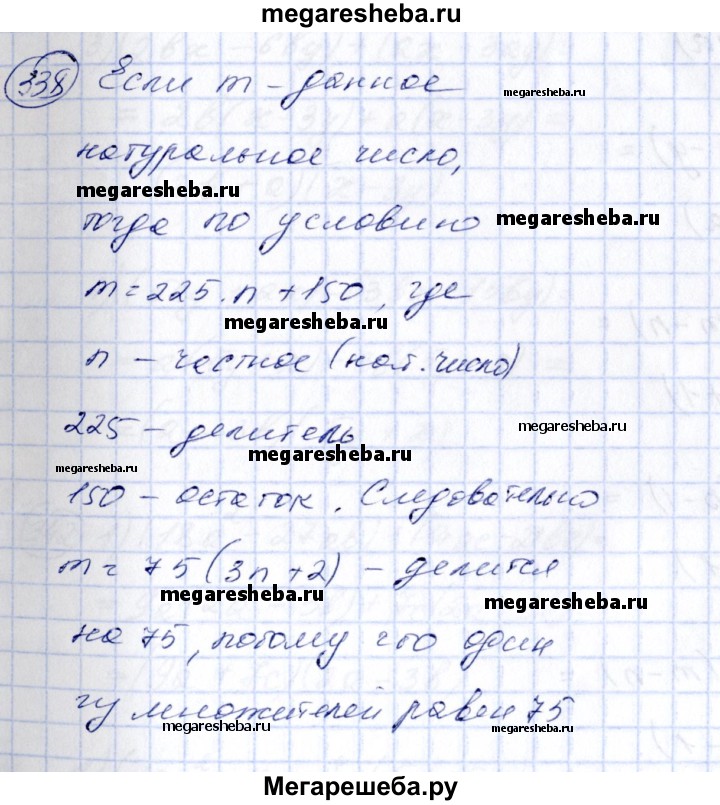 megaresheba.ru
338 Если m - данное
megaresheba.ru
натуральное число,
megaresheba.ru
тогда по условию
megaresheba.ru
m = 225 . n + 150, где
megaresheba.ru
n - частное (нат. число)
225 - делитель
megaresheba.ru
megaresheba.ru
megaresheba.ru
150 - остаток. Следовательно
m = 75 (3n + 2) - делится
megaresheba.ru
megaresheba.ru
на 75, потому что один
из множителей равен 75
megaresheba.ru
megaresheba.ru
Мегарешеба.ру